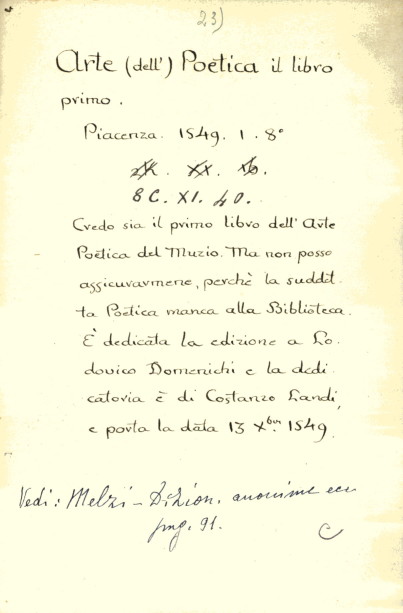 23)
Arte (dell') Poëtica il libro
primo.
Piacenza. 1549. 1. 8°
XX.
8 C. XI. 40.
Credo sia il primo libro dell'Arte
Poëtica del Muzio. Ma non posso
assicurarmene, perchè la suddit-
ta Poëtica manca alla Biblioteca.
È dedicata la edizione a Lo-
dovico Domenichi e la dedi-
catoria è di Costanzo Landi,
e porta la data 13 Xbre. 1549
Vedi: Melzi - Dizion. anonime ecc.
pag. 91.
C